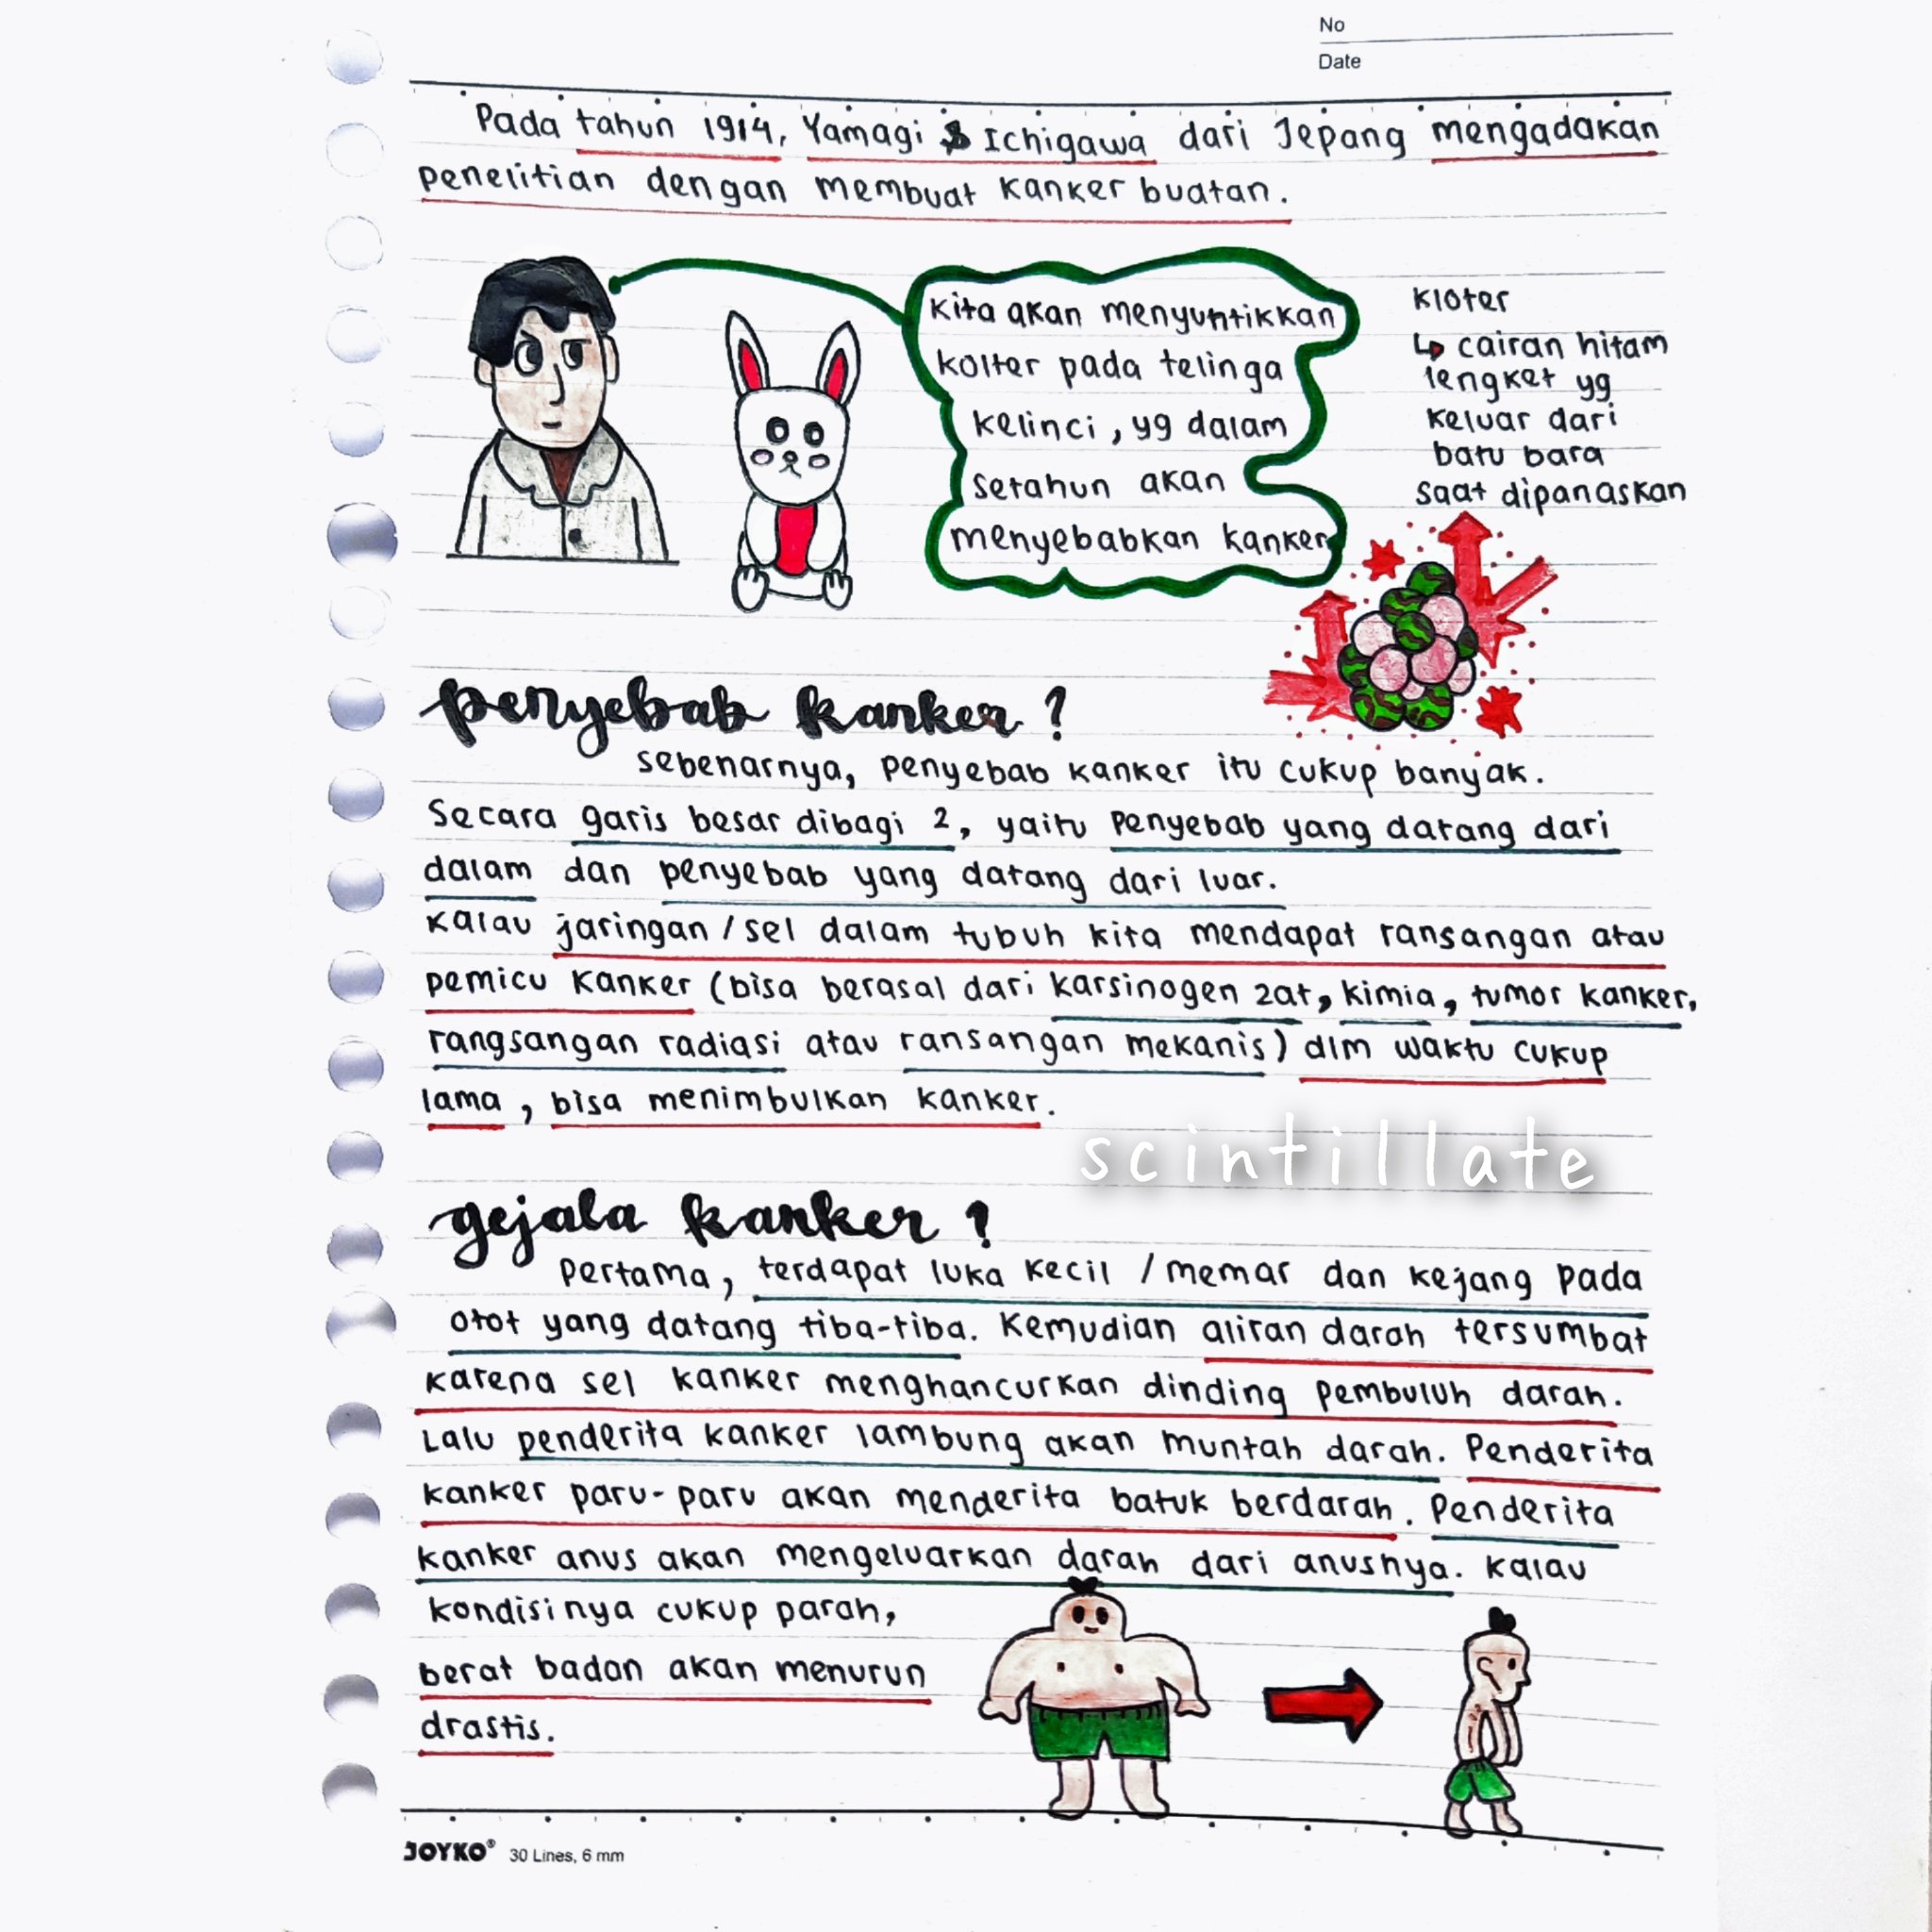 No
Date
Pada tahun 1914, Yamagi & Ichigawa dari Jepang mengadakan
penelitian dengan membuat kanker buatan.
kita akan menyuntikkan
kolter pada telinga
kelinci, yg dalam
setahun akan
menyebabkan kanker
kloter
↳ cairan hitam
lengket yg
keluar dari
batu bara
saat dipanaskan
penyebab kanker?
sebenarnya, penyebab kanker itu cukup banyak.
Secara garis besar dibagi 2, yaitu penyebab yang datang dari
dalam dan penyebab yang datang dari luar.
kalau jaringan/sel dalam tubuh kita mendapat ransangan atau
pemicu kanker (bisa berasal dari karsinogen zat, kimia, tumor kanker,
rangsangan radiasi atau ransangan mekanis) dlm waktu cukup
lama, bisa menimbulkan kanker.
scintillate
gejala kanker?
pertama, terdapat luka kecil/memar dan kejang pada
otot yang datang tiba-tiba. Kemudian aliran darah tersumbat
karena sel kanker menghancurkan dinding pembuluh darah.
Lalu penderita kanker lambung akan muntah darah. Penderita
kanker paru-paru akan menderita batuk berdarah. Penderita
kanker anus akan mengeluarkan darah dari anusnya. kalau
kondisinya cukup parah,
berat badan akan menurun
drastis.
JOYKO® 30 Lines, 6 mm